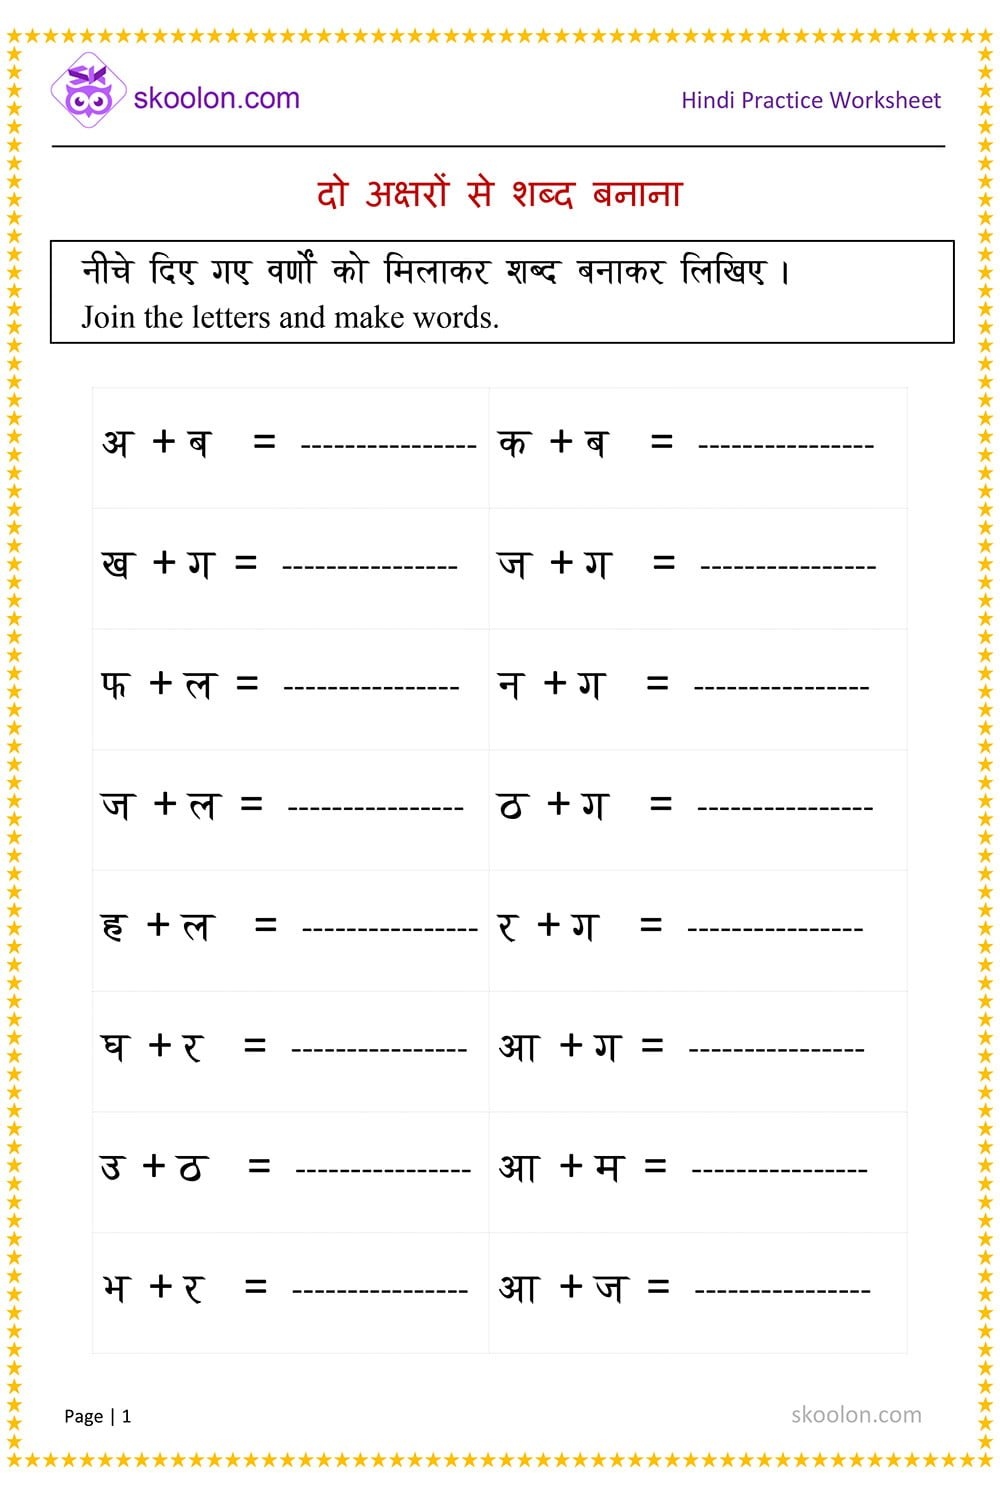 SK
skoolon.com
Hindi Practice Worksheet
दो अक्षरों से शब्द बनाना
नीचे दिए गए वर्णों को मिलाकर शब्द बनाकर लिखिए ।
Join the letters and make words.
अ + ब = ---------------- क + ब = ----------------
ख + ग = ---------------- ज + ग = ----------------
फ + ल = ---------------- न + ग = ----------------
ज + ल = ---------------- ठ + ग = ----------------
ह + ल = ---------------- र + ग = ----------------
घ + र = ---------------- आ + ग = ----------------
उ + ठ = ---------------- आ + म = ----------------
भ + र = ---------------- आ + ज = ----------------
Page | 1
skoolon.com